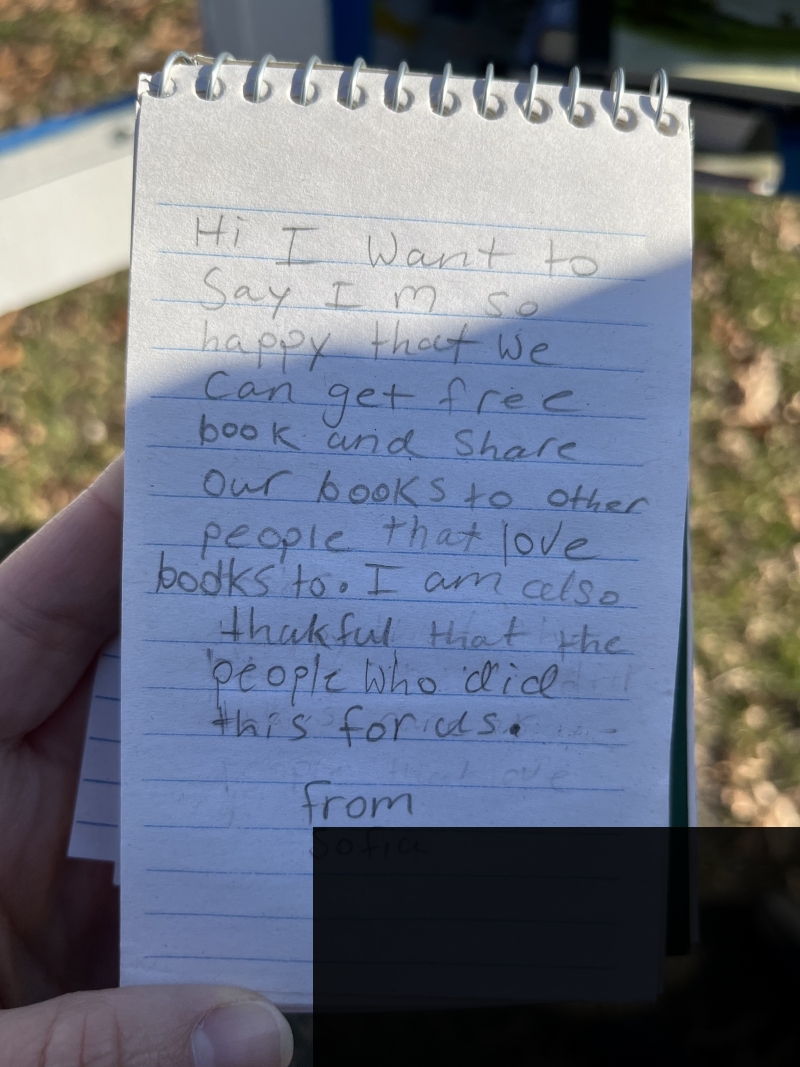 Hi I Want to
Say I m so
happy that We
Can get free
book and Share
Our books to other
people that love
books to. I am also
thakful that the
people Who did
this for us.
from